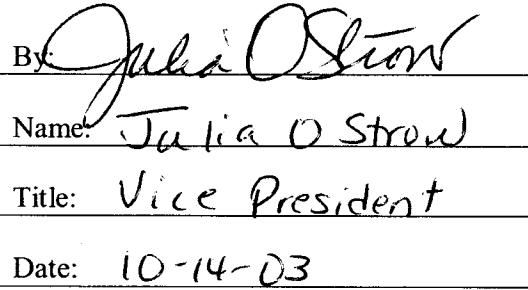 By: Julia O Strow
Name: Julia O Strow
Title: Vice President
Date: 10-14-03